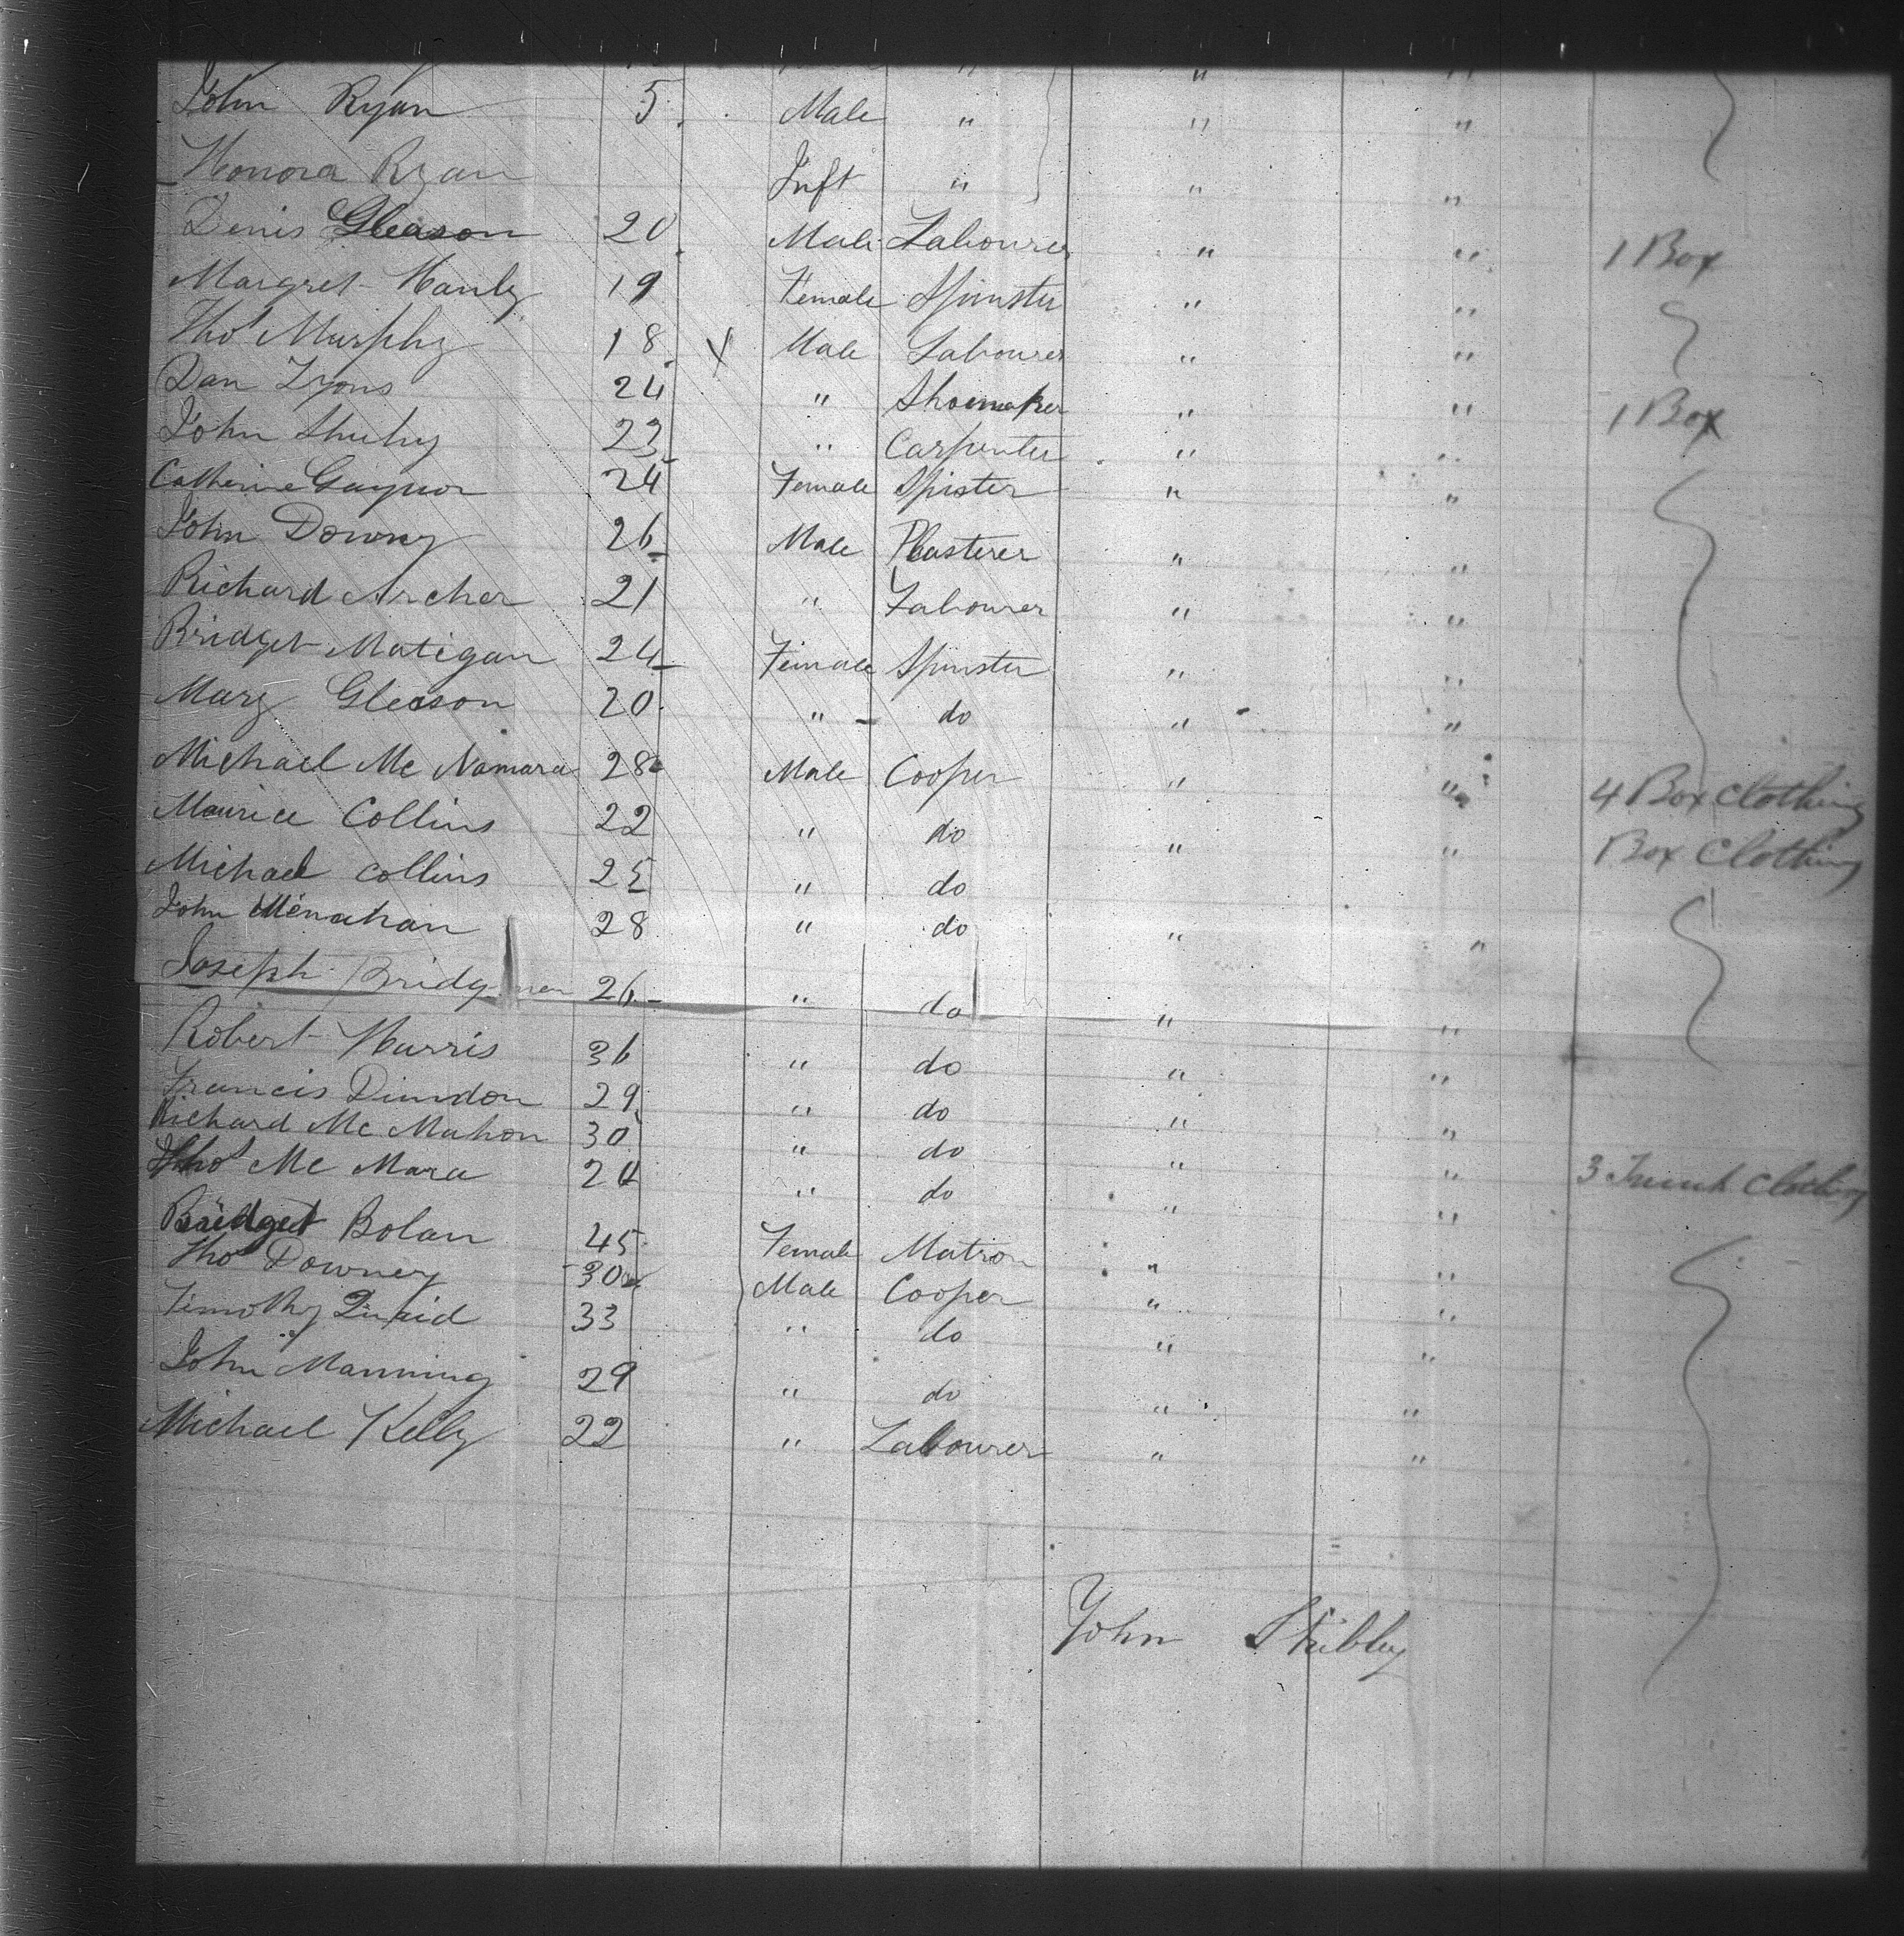 John Ryan 5 Male " " "
Honora Ryan Inft " " "
Denis Gleason 20 Male Labourer " " 1 Box
Margret Hanly 19 Female Spinster " "
Thos Murphy 18 X Male Labourer " "
Dan Lyons 24 " Shoemaker " " 1 Box
John Shuhy 23 " Carpenter " "
Catherine Gaynor 24 Female Spister " "
John Downy 26 Male Plasterer " "
Richard Archer 21 " Labourer " "
Bridget Matigan 24 Female Spinster " "
Mary Gleason 20 " do " "
Michael Mc Namara 28 Male Cooper " " 4 Box Clothing
Maurice Collins 22 " do " " Box Clothing
Michael Collins 25 " do
John Menahan 28 " do " "
Joseph Bridgman 26 " do " "
Robert Harris 36 " do " "
Francis Dundon 29 " do " "
Richard Mc Mahon 30 " do " "
Thos Mc Mara 24 " do " " 3 Trunk Clothing
Bridget Bolan 45 Female Matron " "
Thos Downey 30 Male Cooper " "
Timothy Quaid 33 " do " "
John Manning 29 " do " "
Michael Kelly 22 " Labourer " "
John Shibley